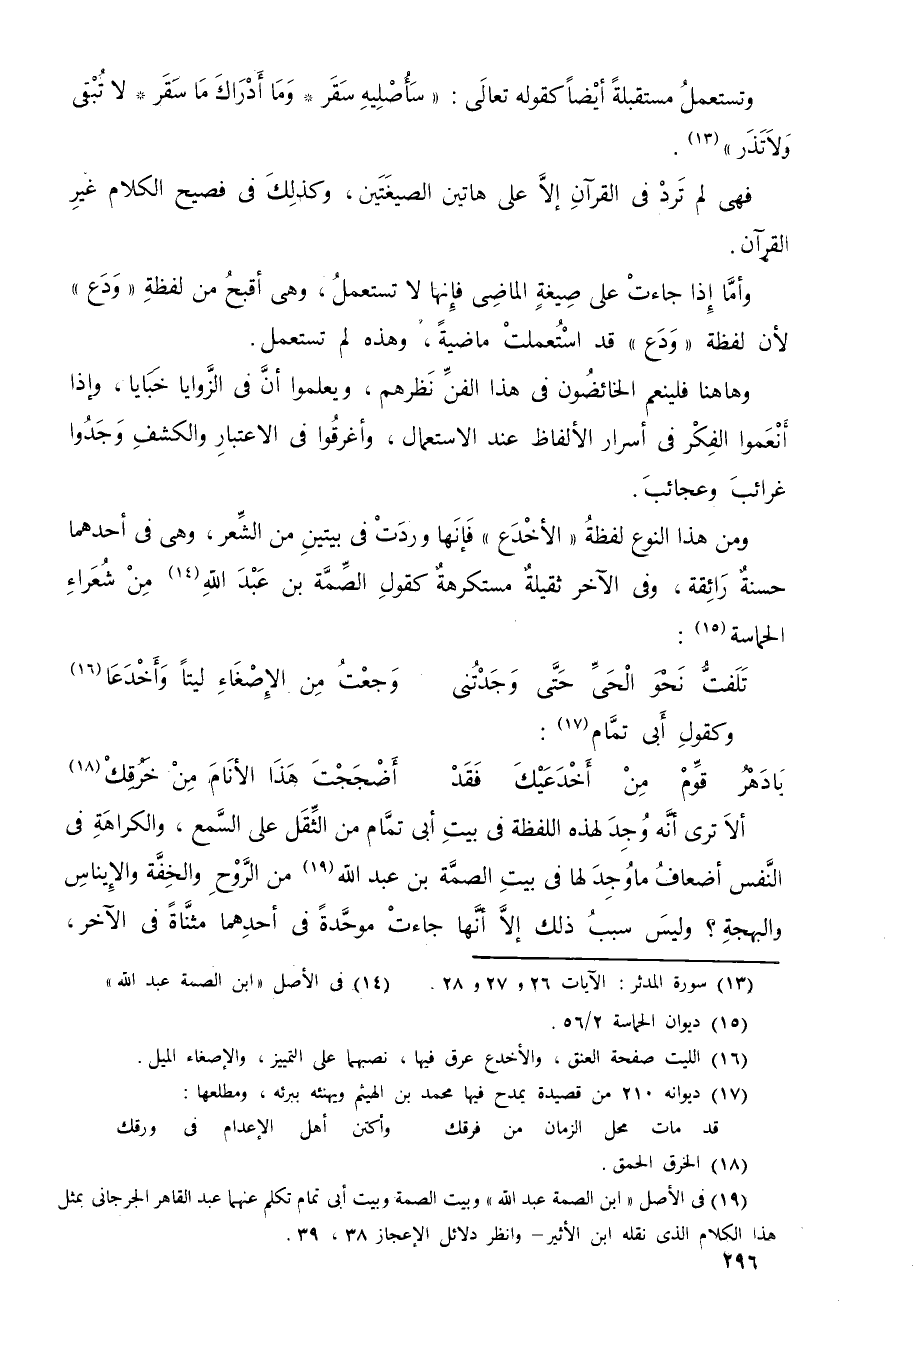 وتستعملُ مستقبلةً أيْضاً كقوله تعالَى : « سَأُصْلِيهِ سقَر * وَمَا أَدْرَاكَ مَا سَقَر * لا تُبْقِى
وَلاَتَذَر »(١٣) .
فهى لم تَردْ فى القرآنِ إلاَّ على هاتين الصيغَتَين ، وكذلِكَ فى فصيح الكلام غيرِ
القرآن .
وأمَّا إِذا جاءتْ على صِيغةِ الماضِى فإِنها لا تستعملُ ، وهى أقبحُ من لفظةِ « وَدَع »
لأن لفظة « وَدَع » قد استُعملتْ ماضيةً ، وهذه لم تستعمل .
وهاهنا فلينعم الخائضُون فى هذا الفنِّ نَظرهم ، ويعلموا أنَّ فى الزَّوايا خَبَايا ، وإذا
أَنْعَموا الفِكْر فى أسرار الألفاظ عند الاستعمال ، وأغرقُوا فى الاعتبار والكشفِ وَجَدُوا
غرائبَ وعجائبَ .
ومن هذا النوع لفظةُ « الأخْدَع » فَإِنَها وردَتْ فى بيتينِ من الشِّعر ، وهى فى أحدهما
حسنةٌ رَائِقة ، وفى الآخر ثقيلةٌ مستكرهةٌ كقولِ الصِّمَّة بن عَبْدَ اللهِ(١٤) مِنْ شُعَراءِ
الحماسة(١٥) :
تَلَفتُّ نَحْوَ الْحَىِّ حَتَّى وَجَدْتُنى    وَجعْتُ مِن الإصْغَاءِ ليتاً وَأَخْدعَا(١٦)
وكقولِ أَبى تمَّام(١٧) :
يَادَهْرُ قوِّمْ مِنْ أَخْدَعَيْكَ فَقَدْ    أَضْجَجْتَ هَذَا الأنَامَ مِنْ خَرُقِكْ(١٨)
ألاَ ترى أنَّه وُجِدَ لهذه اللفظة فى بيتِ أبى تمَّام من الثِّقَل على السَّمع ، والكراهَةِ فى
النَّفس أضعافُ ماوُجِدَ لها فى بيتِ الصمَّة بن عبد الله(١٩) من الرَّوْحِ والخِفَّة والإيناسِ
والبهجةِ ؟ وليسَ سببُ ذلك إلاَّ أنَّها جاءتْ موحَّدةً فى أحدِهما مثنَّاةً فى الآخر ،
(١٣) سورة المدثر : الآيات ٢٦ و ٢٧ و ٢٨ .    (١٤) فى الأصل «ابن الصمة عبد الله »
(١٥) ديوان الحماسة ٥٦/٢ .
(١٦) الليت صفحة العنق ، والأخدع عرق فيها ، نصبهما على التمييز ، والإصغاء الميل .
(١٧) ديوانه ٢١٠ من قصيدة يمدح فيها محمد بن الهيثم ويهنئه ببرئه ، ومطلعها :
قد مات محل الزمان من فرقك    وأكتن أهل الإعدام فى ورقك
(١٨) الخرق الحمق .
(١٩) فى الأصل « ابن الصمة عبد الله » وبيت الصمة وبيت أبى تمام تكلم عنهما عبد القاهر الجرجانى بمثل
هذا الكلام الذى نقله ابن الأثير – وانظر دلائل الإعجاز ٣٨ ، ٣٩ .
٢٩٦